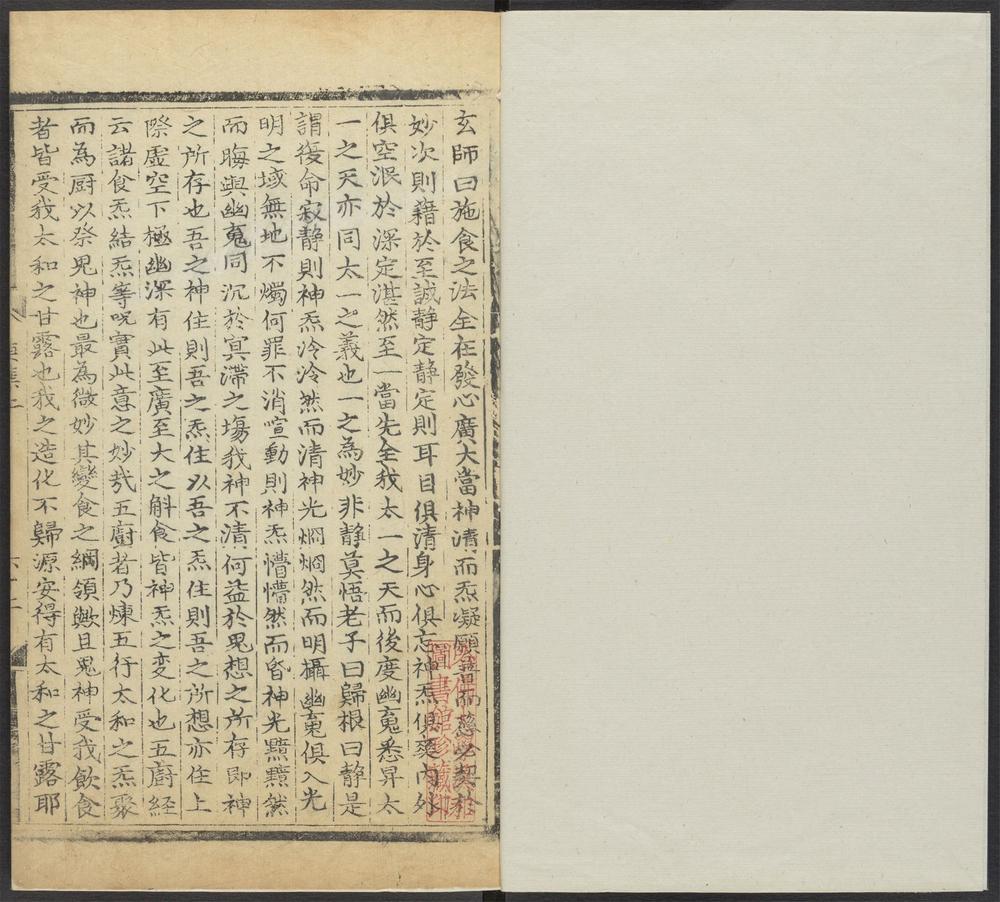 玄師曰施食之法全在發心廣大當神清而炁凝願普而慈必契於
妙次則藉於至誠静定静定則耳目俱清身心俱忘神炁俱爽内外
俱空泯於深定湛然至一當先全我太一之天而後度幽䰟悉昇太
一之天亦同太一之義也一之為妙非静莫悟老子曰歸根曰静是
謂復命寂静則神炁泠泠然而清神光烱烱然而明攝幽䰟俱入光
明之域無地不燭何罪不消喧動則神炁懵懵然而昏神光黯黯然
而晦與幽䰟同沉於冥滯之塲我神不漬何益於鬼想之所存即神
之所存也吾之神住則吾之炁住以吾之炁住則吾之所想亦住上
際虛空下極幽深有此至廣至大之斛食皆神炁之变化也五廚経
云諸食炁結炁等呪實此意之妙㢤五廚者乃煉五行太和之炁聚
而為厨以祭鬼神也最為微妙其變食之綱領歟且鬼神受我飲食
者皆受我太和之甘露也我之造化不歸源安得有太和之甘露耶
圖書館珍藏印